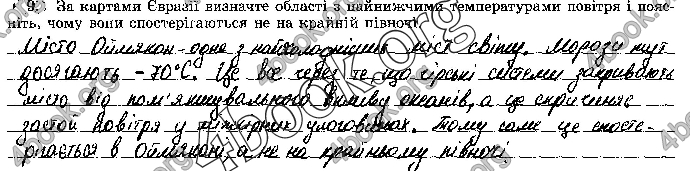 9. За картами Євразії визначте області з найнижчими температурами повітря і пояс-
ніть, чому вони спостерігаються не на крайній півночі.
Місто Оймякон - одне з найхолодніших міст світу. Морози тут
досягають -70°С. Це все через те що гірські системи закривають
місто від пом'якшувального впливу океанів, а це спричиняє
застой повітря у міжгірних улоговинах. Тому саме це спосте-
рігається в Оймяконі а не на крайньому півночі